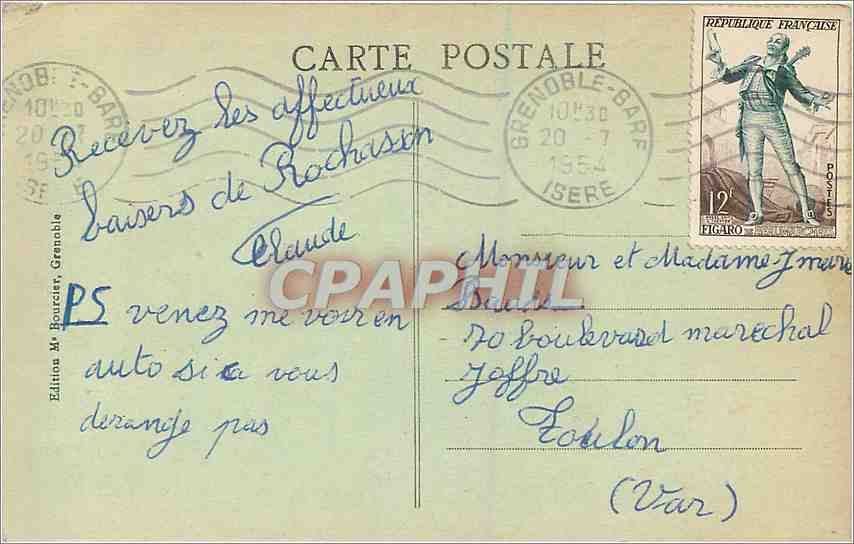 CARTE POSTALE
RÉPUBLIQUE FRANÇAISE
POSTES
12F
FIGARO
GRENOBLE-GARE
10H30
20 -7
1954
ISERE
GRENOBLE-GARE
10H30
20 -7
1954
ISERE
Recevez les affectueux
baisers de Rochasson
Claude
PS venez me voir en
auto si ca vous
derange pas
Edition Ms Bourcier, Grenoble
Monsieur et Madame
70 boulevard marechal
Joffre
Toulon
(Var)
CPAPHIL